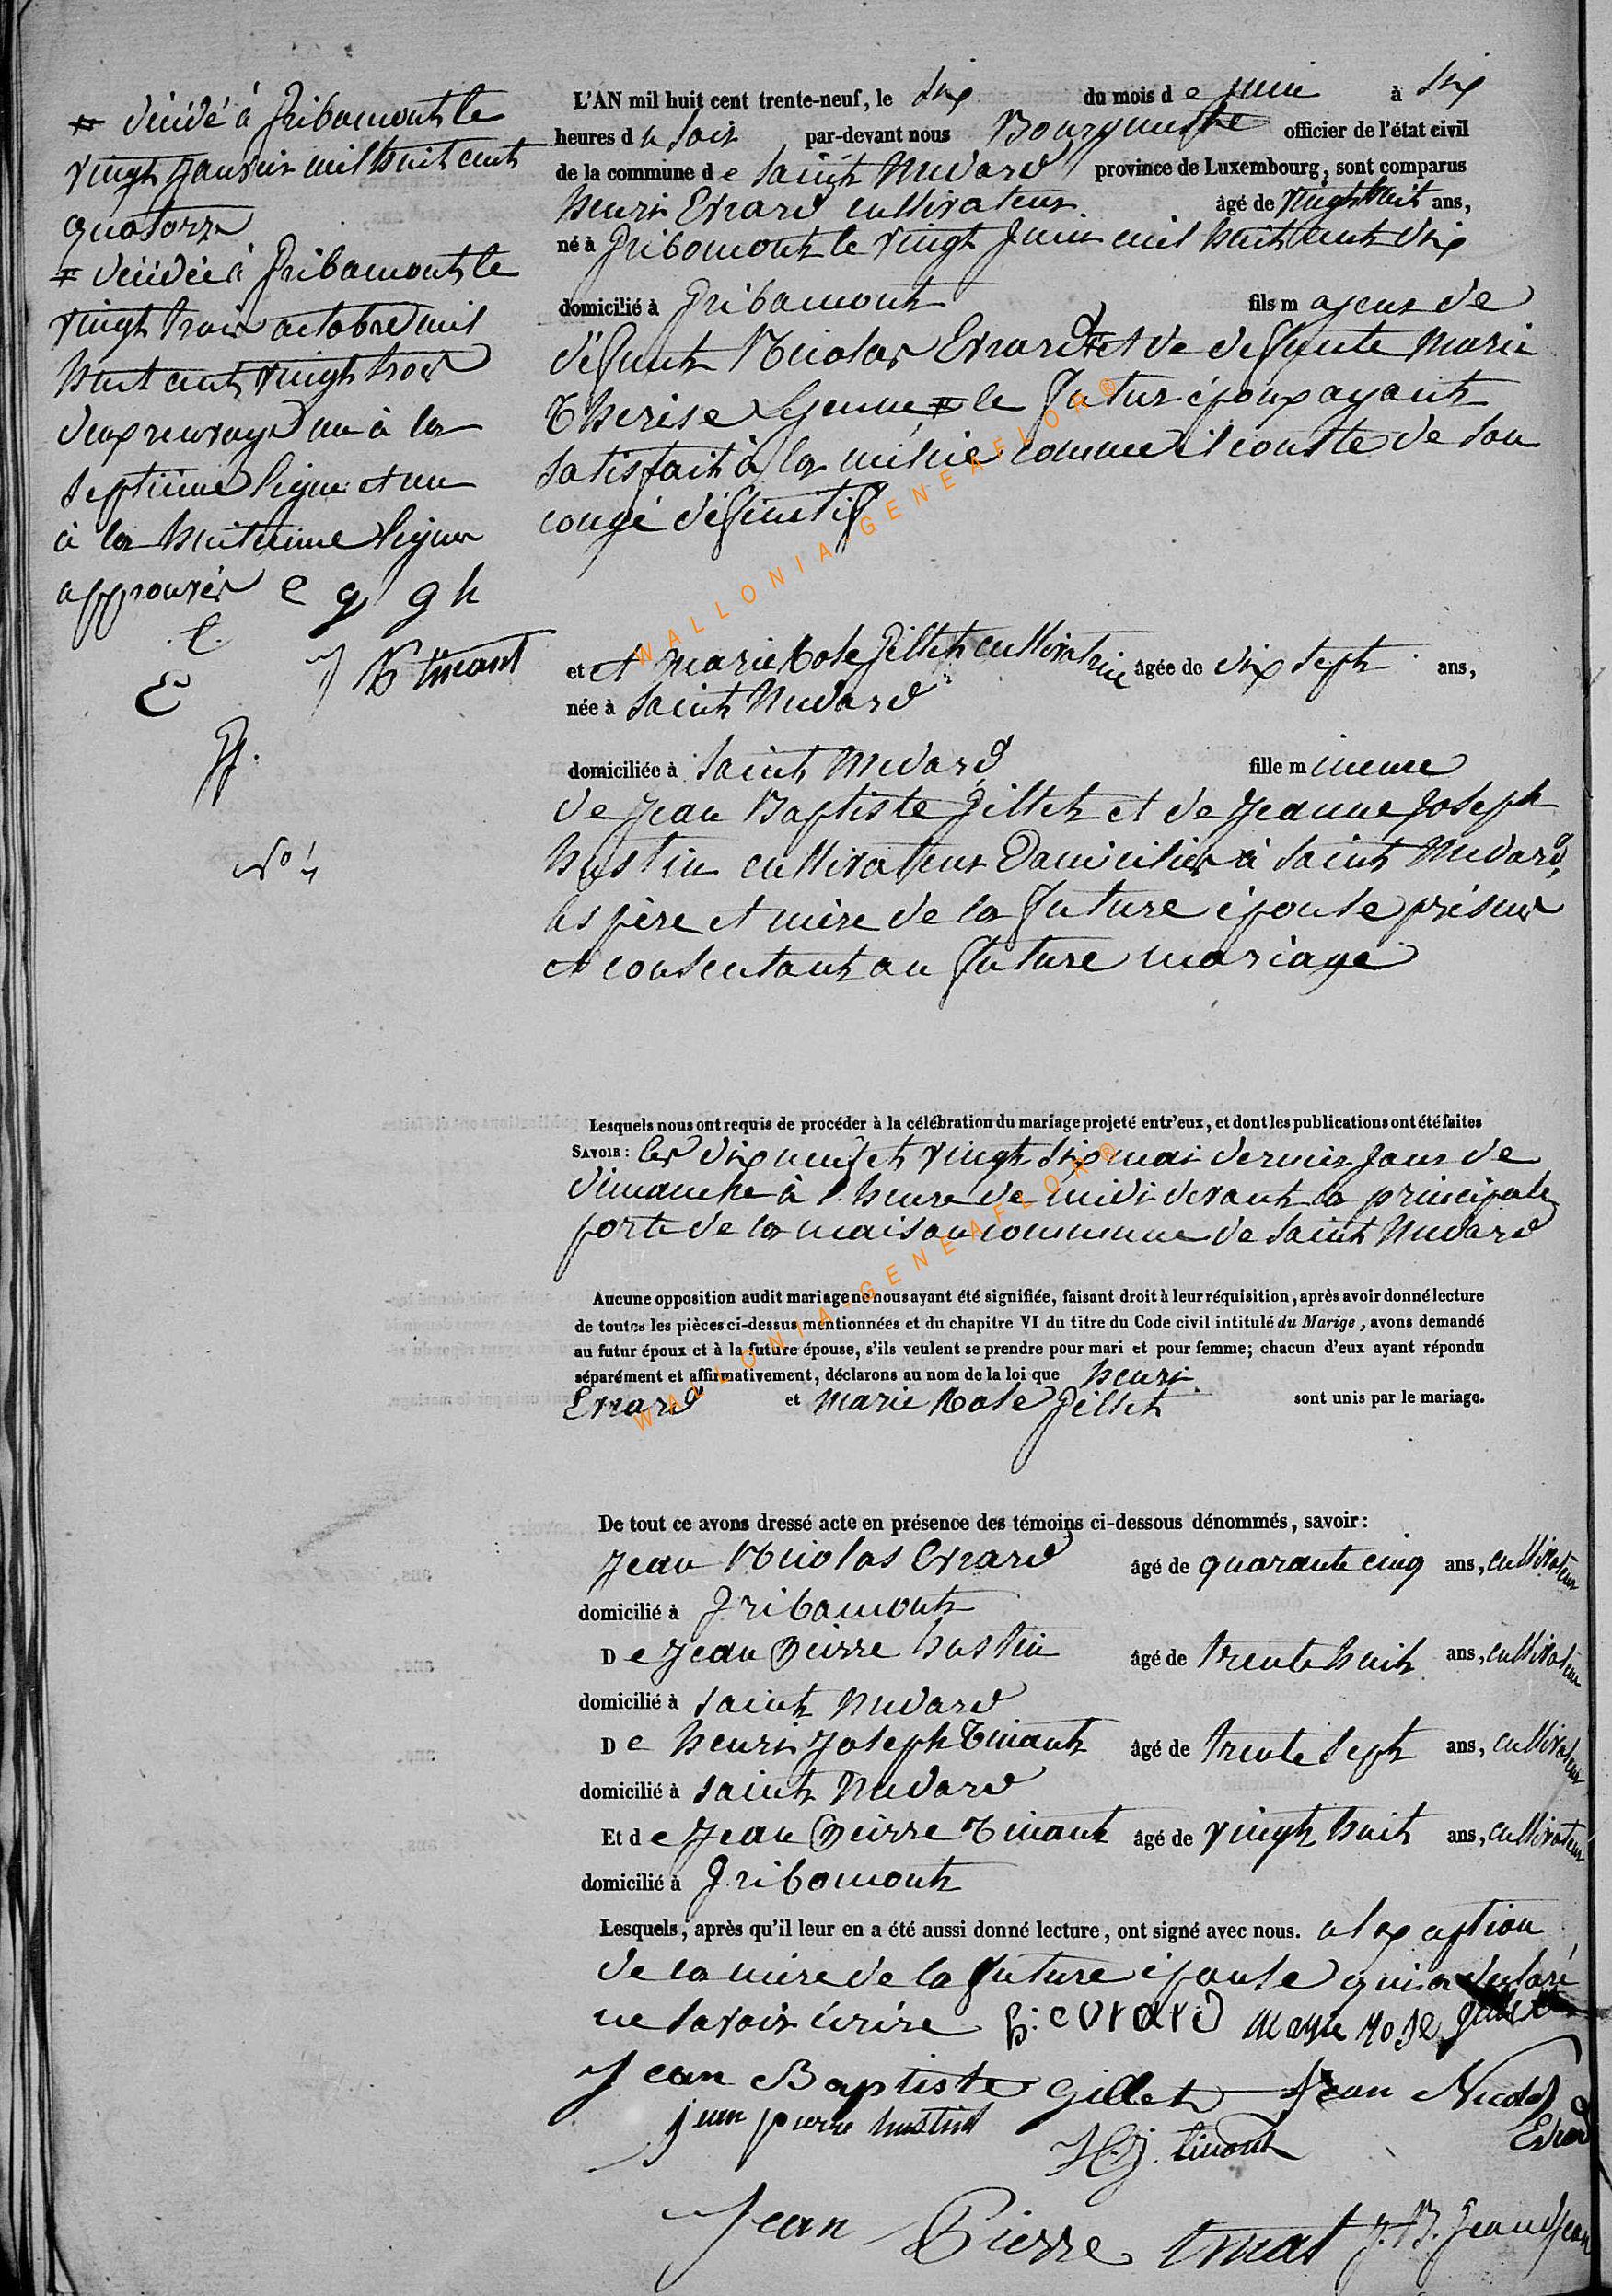 # décédé à Gribomont le
vingt janvier mil huit cent
quatorze
# décédée à Gribomont le
vingt trois octobre mil
huit cent vingt trois
deux renvoys un à la
septieme ligne et un
à la huitieme ligne
approuvés e g g h
E
J N tinant
N° 4
L'AN mil huit cent trente-neuf, le six du mois de juin à six
heures du soir par-devant nous Bourgmestre officier de l'état civil
de la commune de Saint Medard province de Luxembourg, sont comparus
henri Evrard cultivateur âgé de vingt huit ans,
né à Gribomont le vingt juin mil huit cent dix
domicilié à Gribomont fils majeur de
défunt Nicolas Evrard # et de defunte Marie
Therese # le futur époux ayant
satisfait à la milice comme il conste de son
congé définitif
et et marie Rose Gillet cultivatrice âgée de dix sept ans,
née à Saint Medard
domiciliée à Saint Medard fille mineure
de Jean Baptiste Gillet et de Jeanne Joseph
hustin cultivateurs Domiciliés à Saint Medard,
les père et mère de la future épouse présens
et consentant au future mariage
Lesquels nous ont requis de procéder à la célébration du mariage projeté entr'eux, et dont les publications ont été faites
SAVOIR: les dix neuf et vingt six mai dernier jour de
dimanche à l'heure de midi devant la principale
porte de la maison commune de Saint Medard
Aucune opposition audit mariage ne nous ayant été signifiée, faisant droit à leur réquisition, après avoir donné lecture
de toutes les pièces ci-dessus mentionnées et du chapitre VI du titre du Code civil intitulé du Marige, avons demandé
au futur époux et à la future épouse, s'ils veulent se prendre pour mari et pour femme; chacun d'eux ayant répondu
séparément et affirmativement, déclarons au nom de la loi que henri
Evrard et Marie Rose Gillet sont unis par le mariage.
De tout ce avons dressé acte en présence des témoins ci-dessous dénommés, savoir:
Jean Nicolas Evrard âgé de quarante cinq ans, cultivateur
domicilié à Gribomont
De Jean Pierre hustin âgé de trente huit ans, cultivateur
domicilié à Saint Medard
De henri Joseph Tinant âgé de trente sept ans, cultivateur
domicilié à Saint Medard
Et de Jean Pierre Tinant âgé de vingt huit ans, cultivateur
domicilié à Gribomont
Lesquels, après qu'il leur en a été aussi donné lecture, ont signé avec nous. a lexception
de la mère de la future épouse qui a déclaré
ne savoir écrire h: evrard marie rose gillet
Jean Baptiste Gillet Jean Nicolas
Evrard
jean pierre hustin H.J. tinant
Jean Pierre tinat J.B. Grandjean
WALLONIA-GENEAFLOR®
WALLONIA-GENEAFLOR®